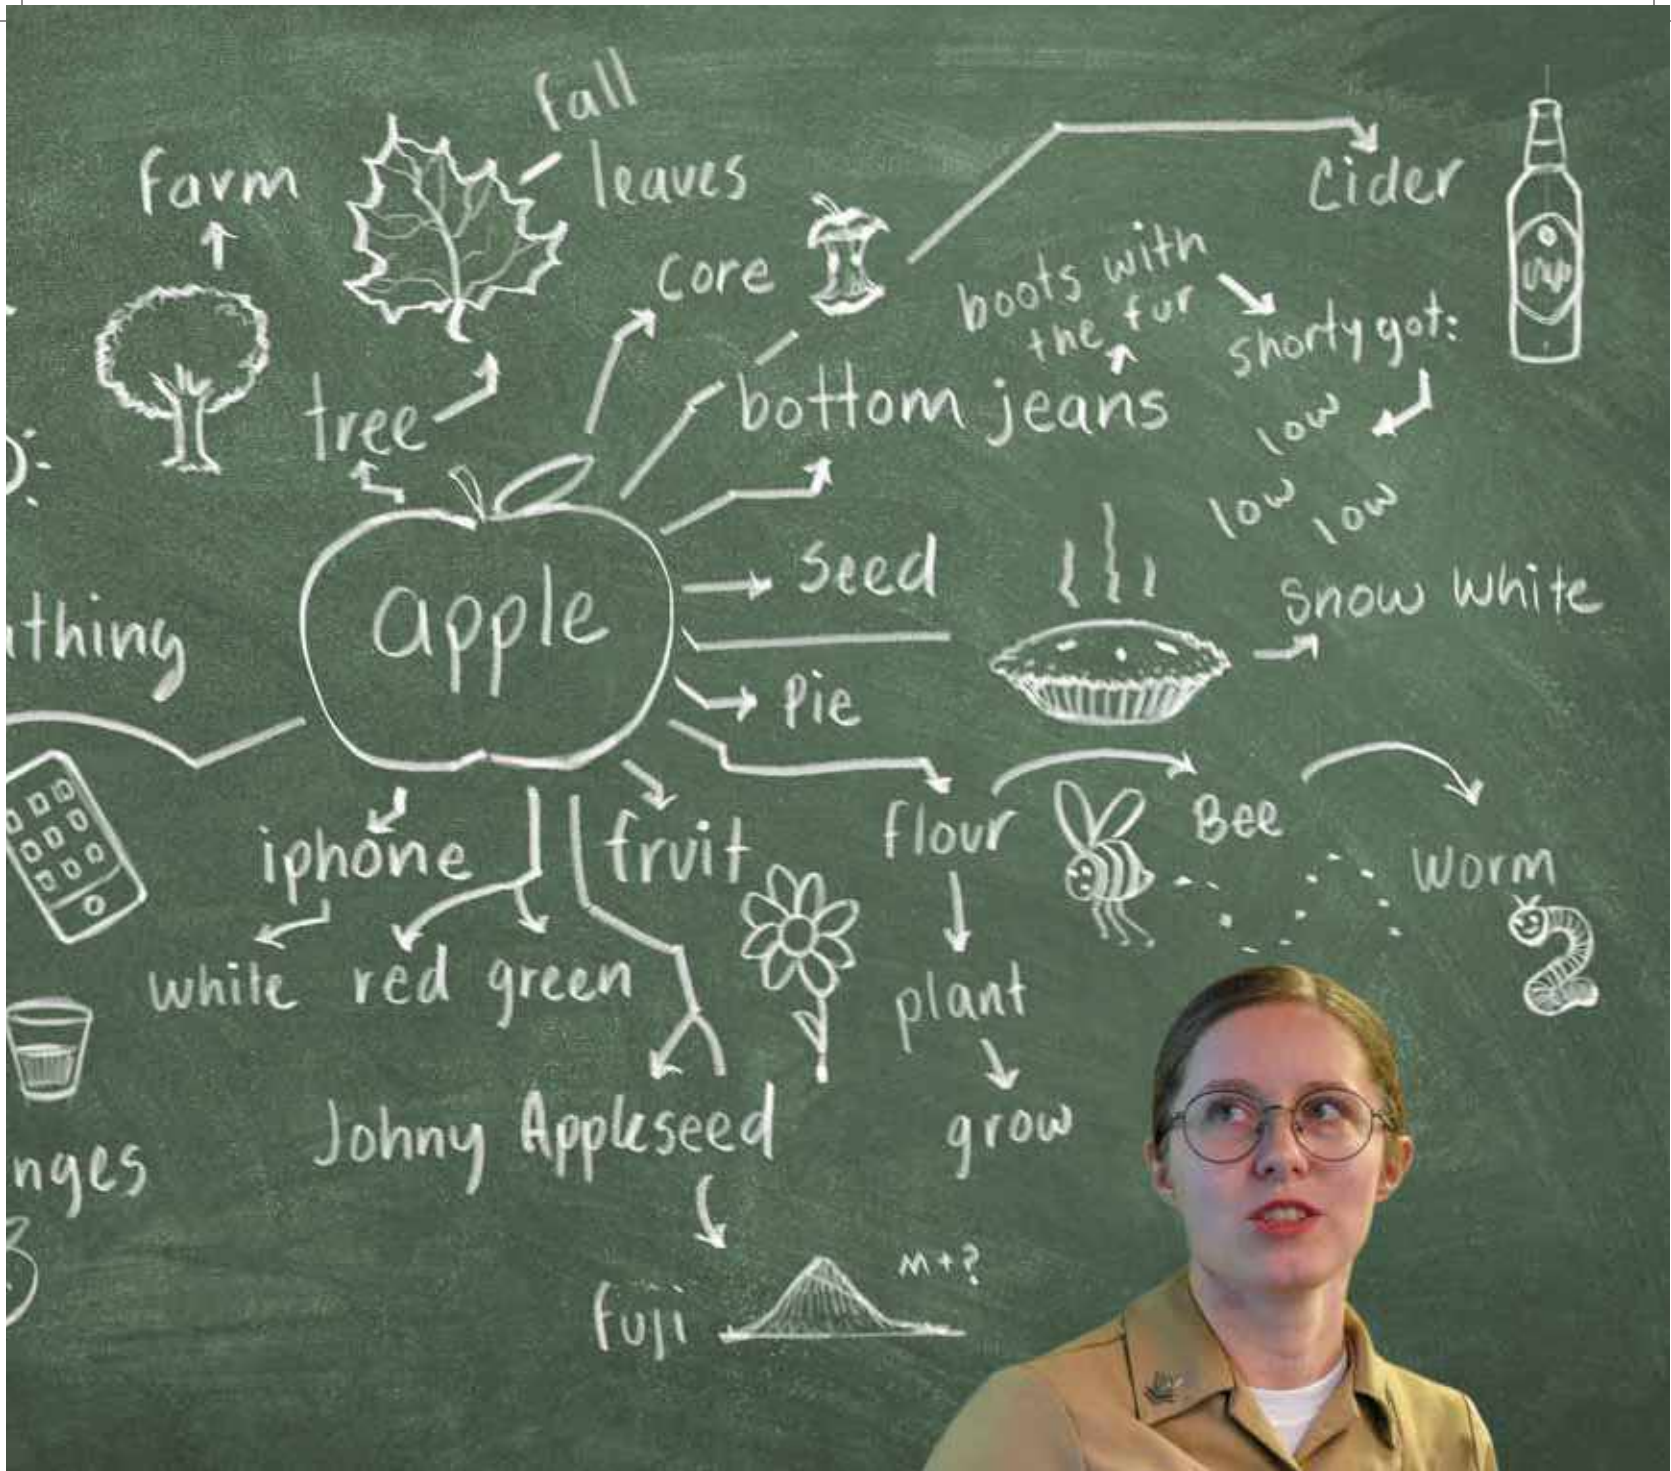 fall
leaves
farm
Cider
core
boots with
the fur
shorty got:
tree
bottom jeans
low
low
low
apple
seed
Snow White
thing
Pie
iphone
fruit
flour
Bee
worm
while
red
green
plant
Johny Appleseed
grow
nges
fuji
M+?